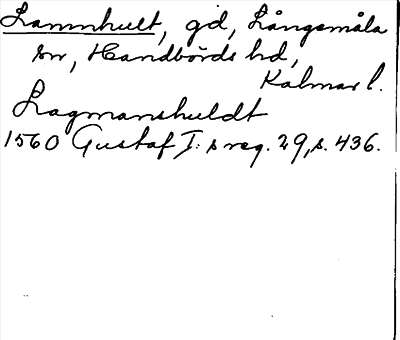 Lammhult, gd, Långemåla
sn, Handbörds hd,
Kalmar l.
Lagmanshuldt
1560 Gustaf I:s reg. 29, s. 436.